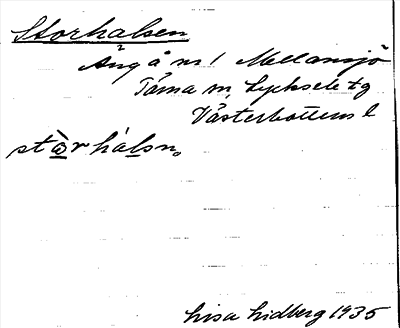 Storhalsen
Ängå nr 1 Mellansjö
Tärna sn, Lycksele tg
Västerbottens l
stɷ̀rhálsn.
Lisa Lidberg 1935